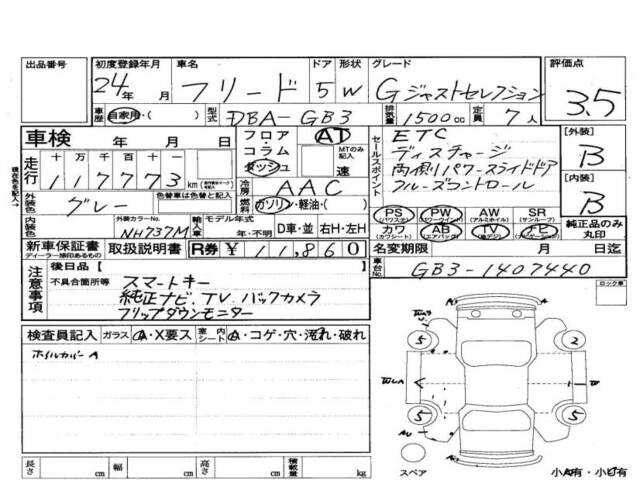 出品番号 初度登録年月 車名 ドア 形状 グレード 評価点
24年 月 フリード 5 W Gジャストセレクション 3.5
車歴 自家用・( ) 型式 DBA-GB3 排気量 1500cc 定員 7人
車検 年 月 日 フロア AT
コラム MTのみ記入
ダッシュ 速
走行 十万千百十一
117773 km
冷房 AAC
セールスポイント
ETC
ディスチャージ
両側パワースライドドア
クルーズコントロール
[外装]
B
[内装]
B
外装色 グレー 色替車は色替と記入 燃料 ガソリン・軽油・( )
PS PW AW SR
(パワステ) (パワーウインド) (アルミホイル) (サンルーフ)
カワ AB TV ナビ
(カワシート) (エアバッグ) 純正品のみ丸印
外装カラーNo. NH737M 輸入車 モデル年式 年・不明 D車・並 右H・左H
新車保証書 取扱説明書 R券 ¥11,860
ディーラー捺印あるもの
名変期限 月 日迄
車台No. GB3-1407440
現在色を記入→
注意事項
後日品【 】
不具合箇所等 スマートキー
純正ナビ、TV、バックカメラ
フリップダウンモニター
ロック車
検査員記入 ガラス A・X要ス 室内シート A・コゲ・穴・汚れ・破れ
ホイルカバーA
5 2
5 5
W
スペア 小A有・小ビ有
長さ cm 幅 cm 高さ cm 積載量 kg